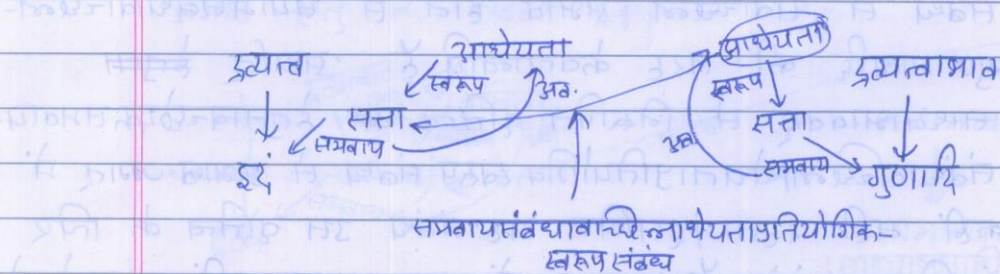 द्रव्यत्व
आधेयता
स्वरूप
अव.
सत्ता
समवाय
इदं
आधेयता
स्वरूप
द्रव्यत्वाभाव
सत्ता
अव.
समवाय
गुणादि
समवायसंबंधावच्छिन्नाधेयताप्रतियोगिक-
स्वरूप संबंध